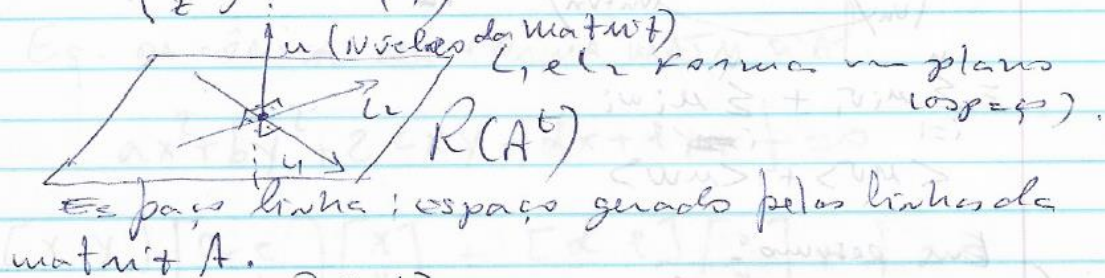 u (núcleo da matriz)
L1 e L2 forma um plano
(espaço).
L2
R(A^t)
L1
Espaço linha: espaço gerado pelas linhas da
matriz A.